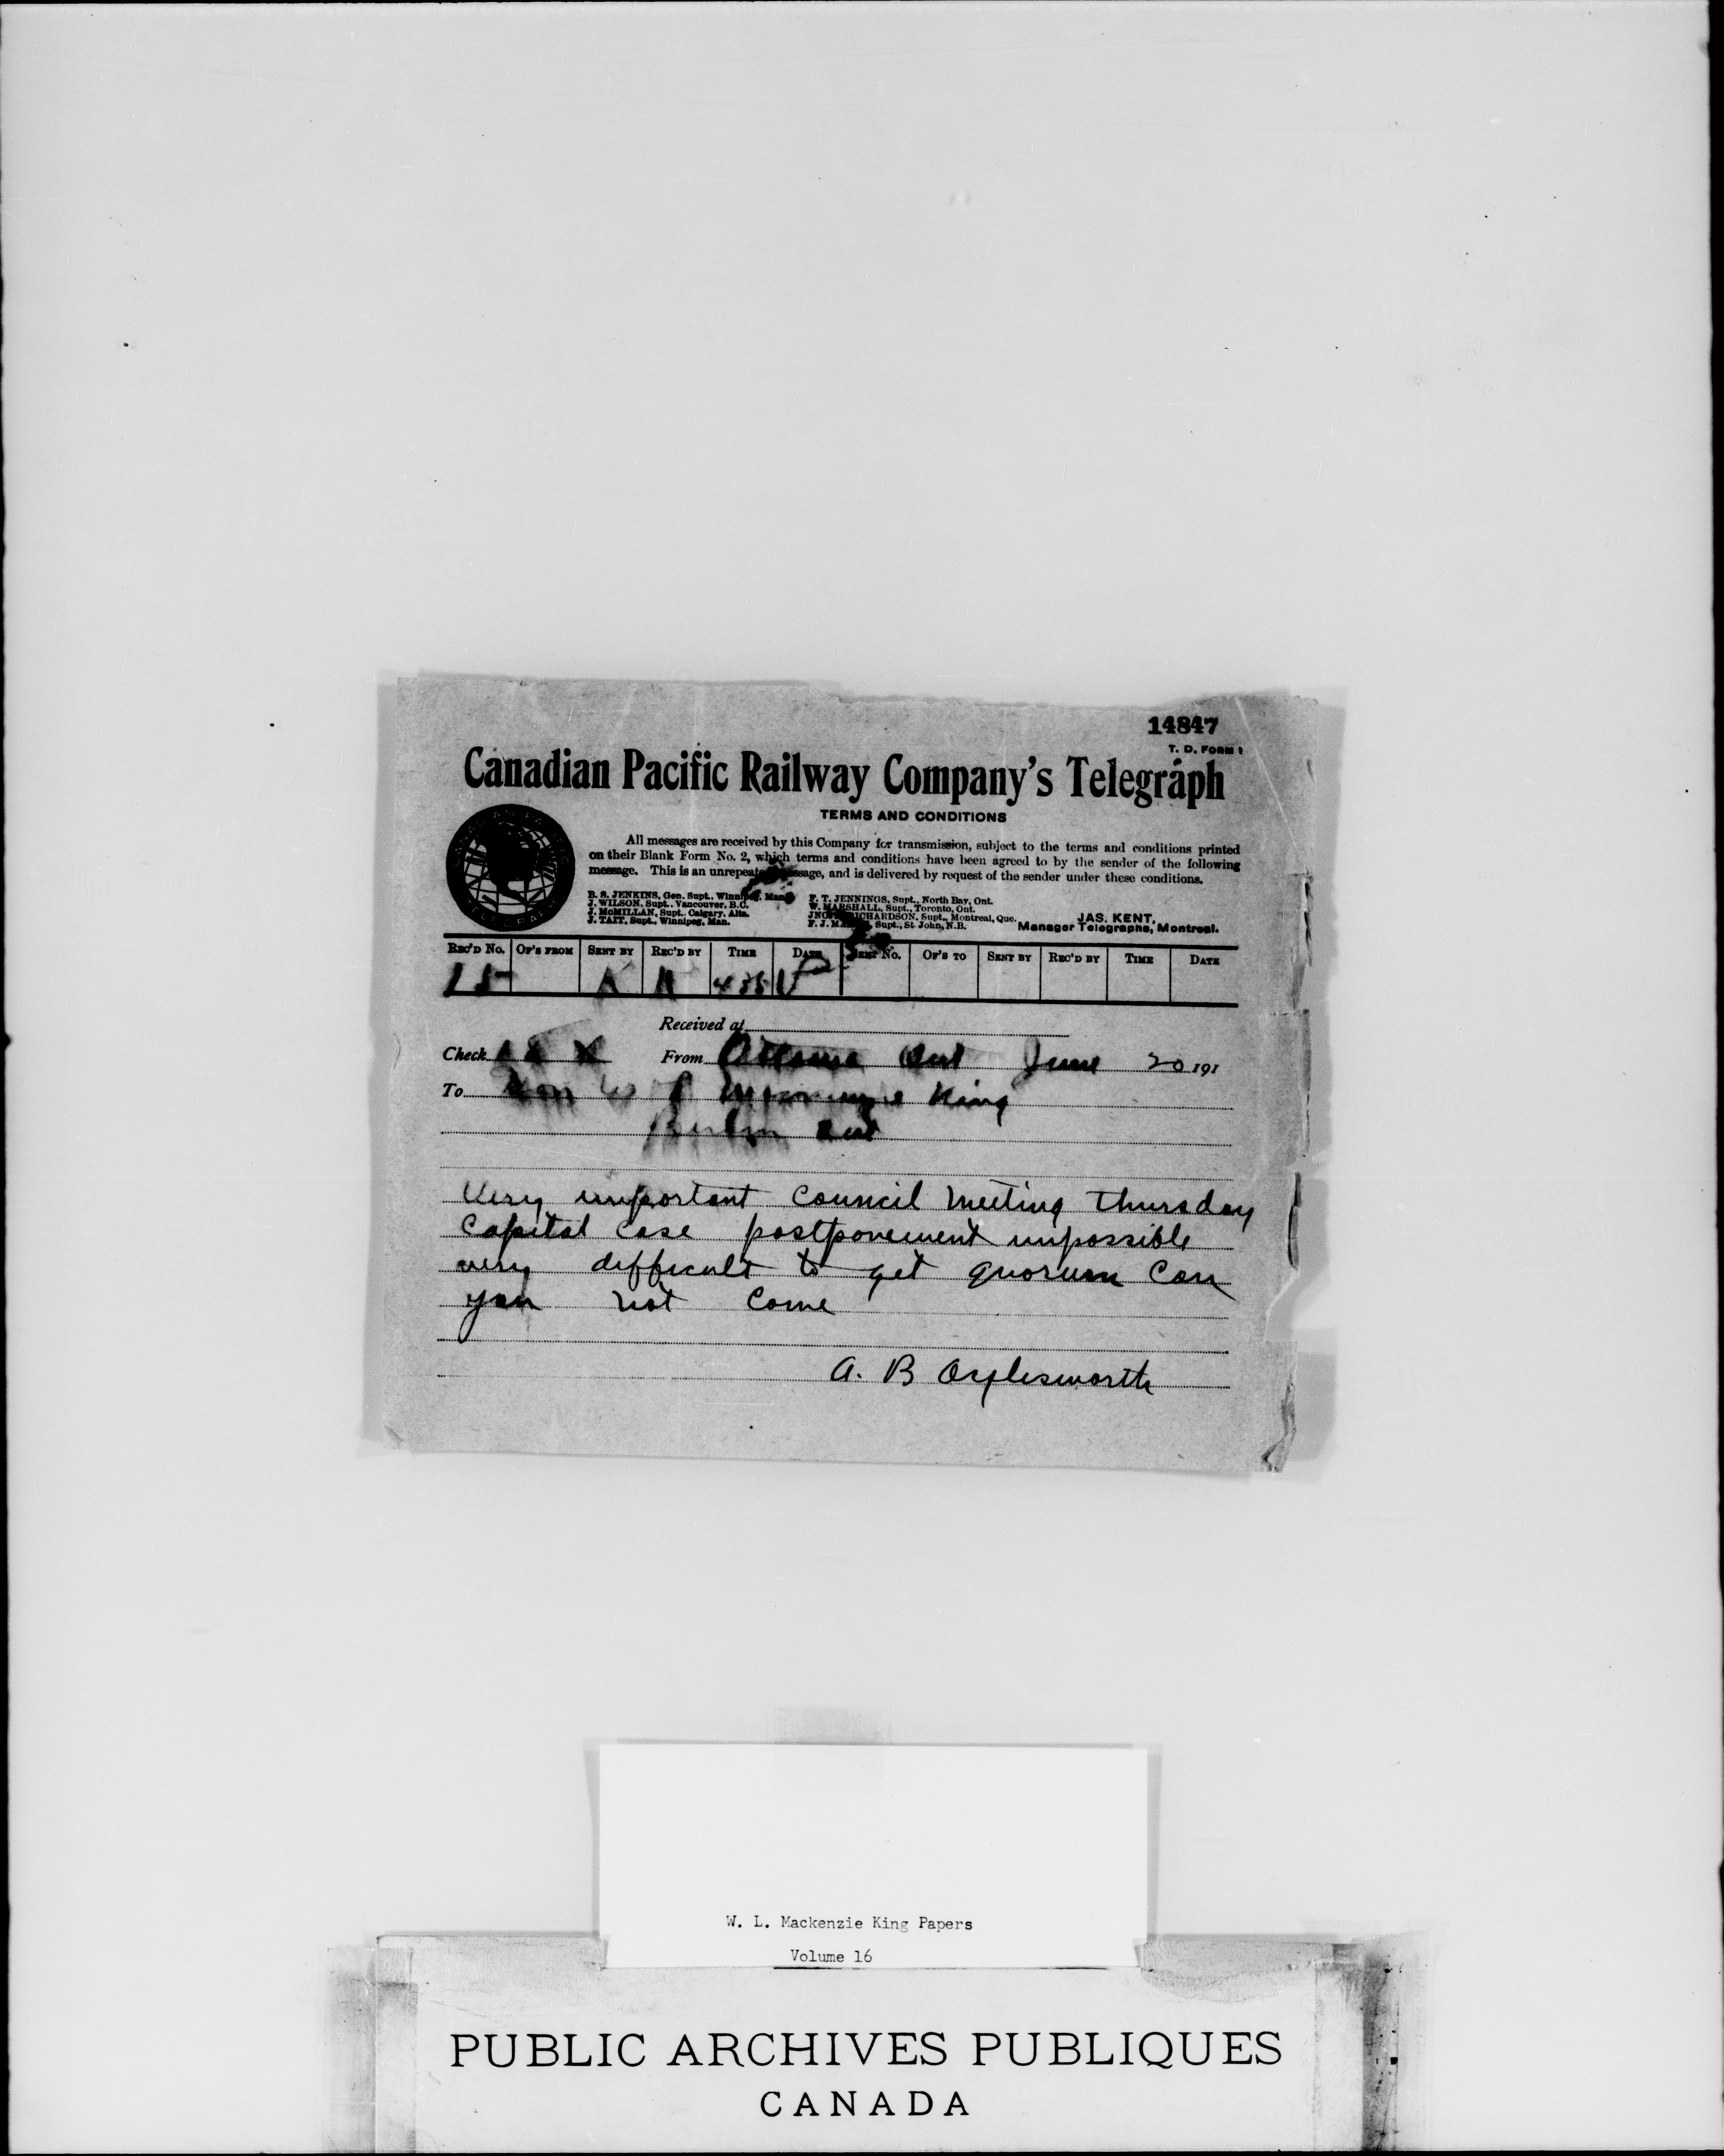 14847
T. D. FORM 1
Canadian Pacific Railway Company's Telegraph
TERMS AND CONDITIONS
All messages are received by this Company for transmission, subject to the terms and conditions printed
on their Blank Form No. 2, which terms and conditions have been agreed to by the sender of the following
message. This is an unrepeated message, and is delivered by request of the sender under these conditions.
B. S. JENKINS, Gen. Supt., Winnipeg, Man.
J. WILSON, Supt., Vancouver, B.C.
J. McMILLAN, Supt., Calgary, Alta.
J. TAIT, Supt., Winnipeg, Man.
F. T. JENNINGS, Supt., North Bay, Ont.
W. MARSHALL, Supt., Toronto, Ont.
RICHARDSON, Supt., Montreal, Que.
F. J. Supt., St. John, N.B.
JAS. KENT,
Manager Telegraphs, Montreal.
REC'D NO. OF'S FROM SENT BY REC'D BY TIME DATE SENT NO. OF'S TO SENT BY REC'D BY TIME DATE
15 K
Received at
Check From Ottawa Ont June 20 191
To Hon W L Mackenzie King
Berlin Ont
Very important council meeting thursday
capital case postponement impossible
very difficult to get quorum can
you not come
A. B Aylesworth
W. L. Mackenzie King Papers
Volume 16
PUBLIC ARCHIVES PUBLIQUES
CANADA